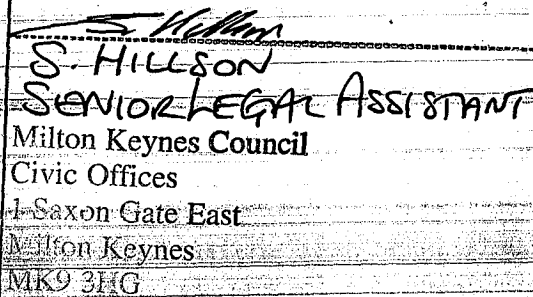 S. HILLSON
SENIOR LEGAL ASSISTANT
Milton Keynes Council
Civic Offices
1 Saxon Gate East
Milton Keynes
MK9 3HG